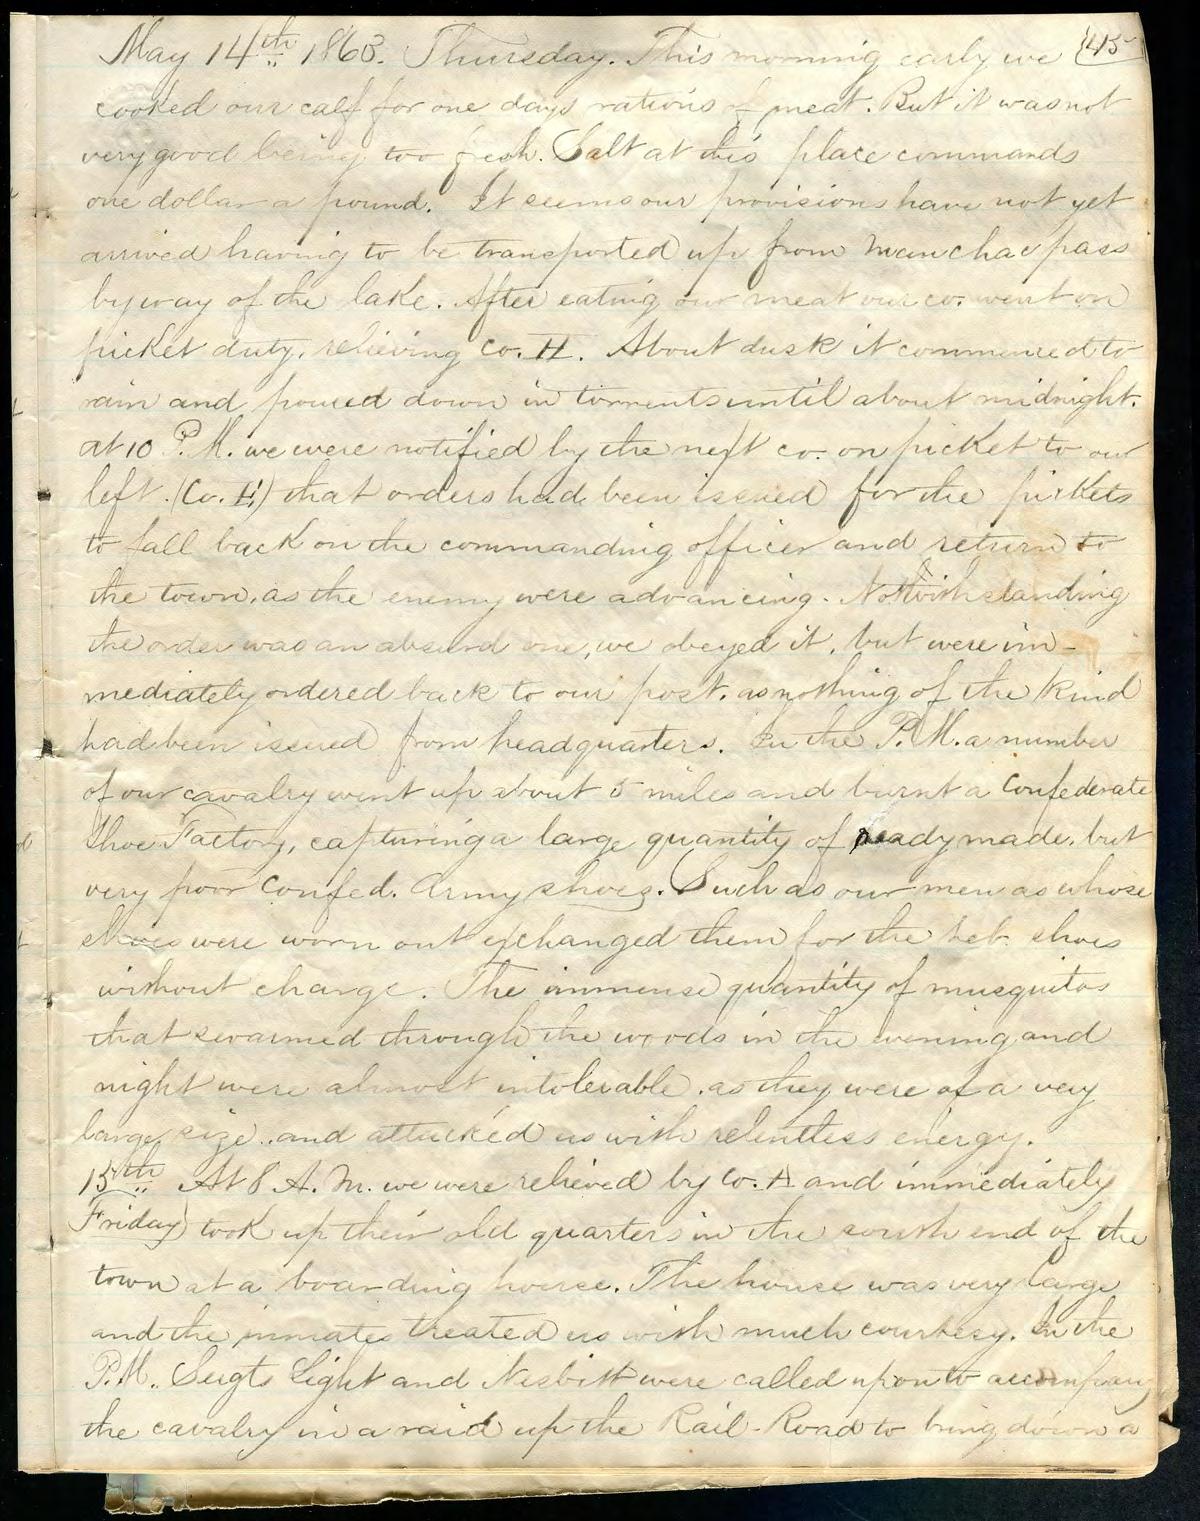 May 14th 1863. Thursday. This morning early we
45
cooked our calf for one days rations of meat. But it was not
very good being too fresh. Salt at this place commands
one dollar a pound. It seems our provisions have not yet
arrived having to be transported up from Manchac pass
by way of the lake. After eating our meat our co. went on
picket duty, relieving Co. H. About dusk it commenced to
rain and poured down in torrents until about midnight.
At 10 P.M. we were notified by the next co. on picket to our
left (Co. E) that orders had been issued for the pickets
to fall back on the commanding officer and return to
the town, as the enemy were advancing. Notwithstanding
the order was an absurd one, we obeyed it, but were im-
mediately ordered back to our post, as nothing of the kind
had been issued from headquarters. In the P.M. a number
of our cavalry went up about 5 miles and burnt a Confederate
Shoe Factory, capturing a large quantity of ready made, but
very poor Confed. Army shoes. Such as our men as whose
shoes were worn out exchanged them for the reb. shoes
without charge. The immense quantity of musquitos
that swarmed through the woods in the evening and
night were almost intolerable, as they were of a very
large size, and attacked us with relentless energy.
15th At 8 A.M. we were relieved by Co. A and immediately
Friday took up their old quarters in the south end of the
town at a boarding house. The house was very large
and the inmates treated us with much courtesy. In the
P.M. Sergts Light and Nesbitt were called upon to accompany
the cavalry in a raid up the Rail-Road to bring down a